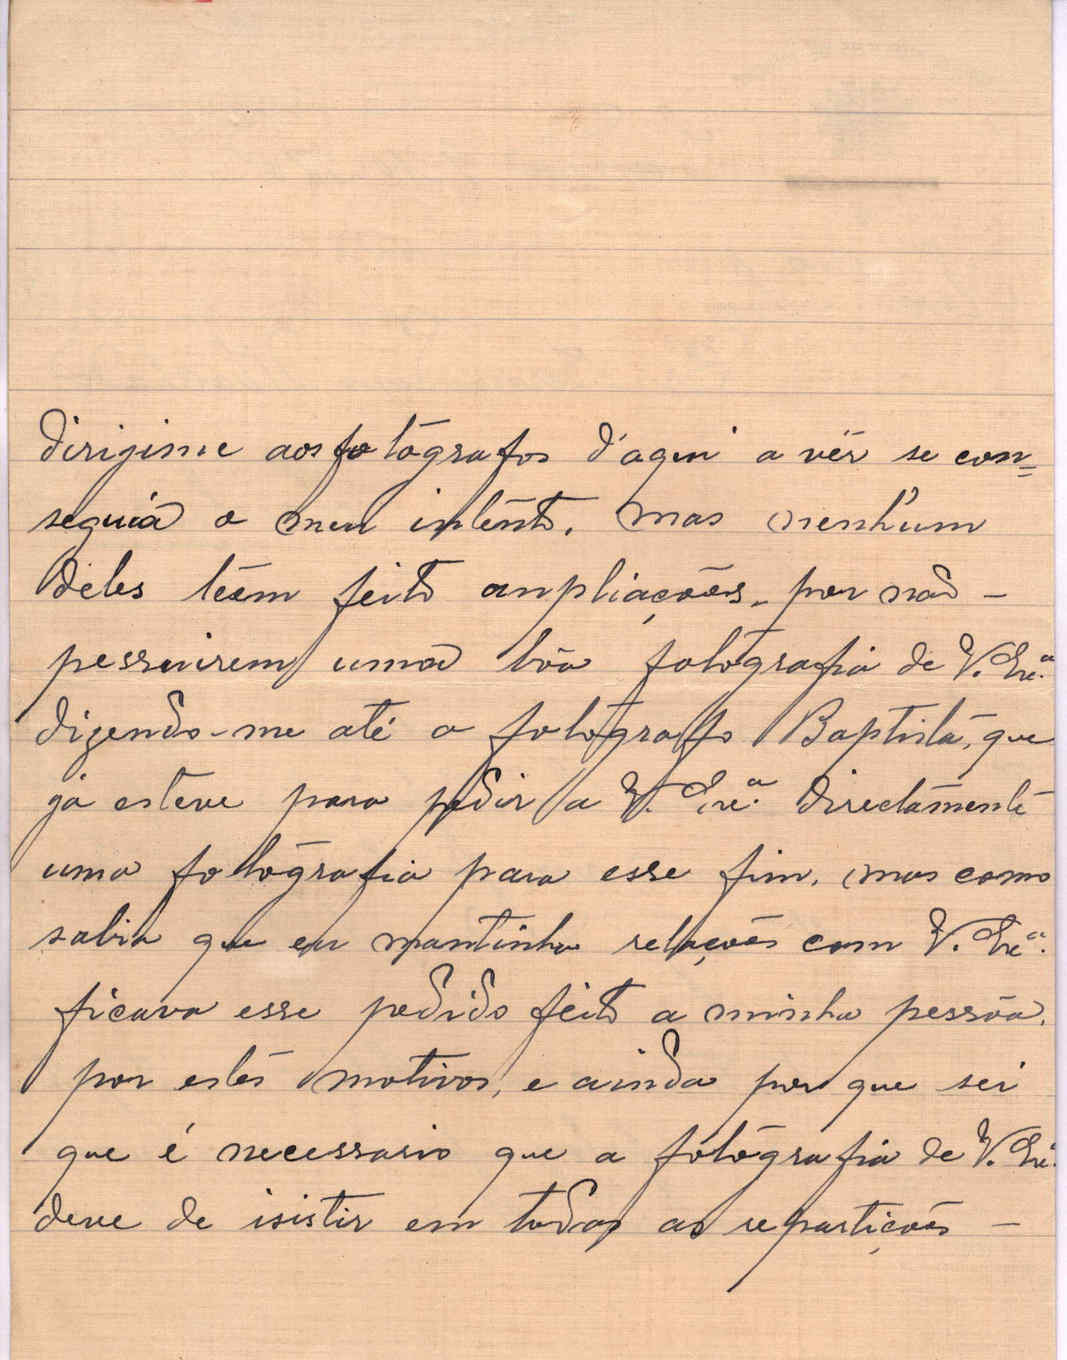 dirigime aos fotógrafos d'aqui a vêr se con=
seguia o meu intento. mas nenhum
deles têem feito anpliações, por não -
pessuirem uma bôa fotografia de V. Exª.
dizendo-me até o fotografo Baptista, que
ja esteve para pedir a V. Exª. directamente
uma fotografia para esse fim, mas como
sabia que eu mantinha relações com V. Exª.
ficava esse pedido feito a minha pessôa.
por estes motivos, e ainda por que sei
que é necessario que a fotografia de V. Exª.
deve de isistir em todas as repartições -